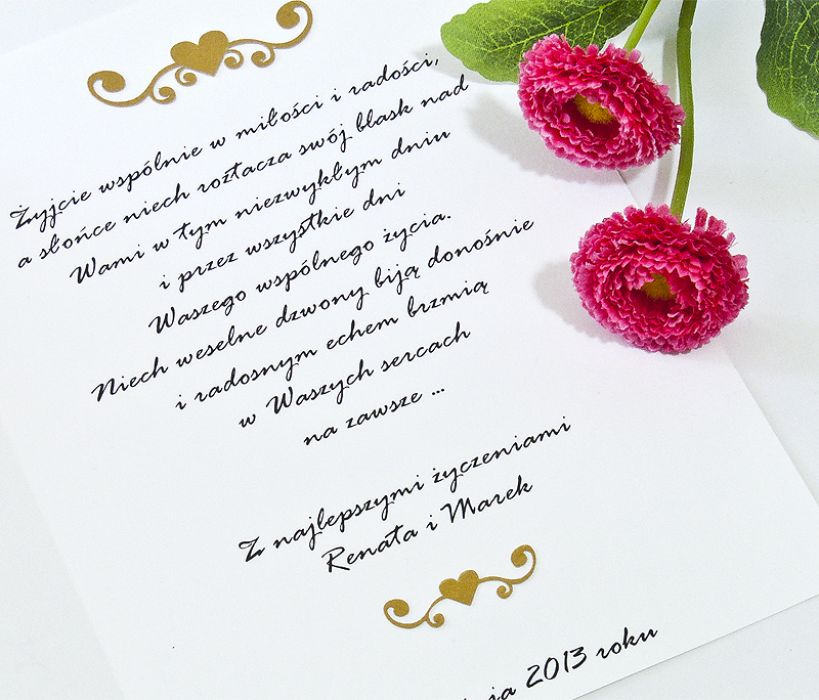 Żyjcie wspólnie w miłości i radości,
a słońce niech roztacza swój blask nad
Wami w tym niezwykłym dniu
i przez wszystkie dni
Waszego wspólnego życia.
Niech weselne dzwony biją donośnie
i radosnym echem brzmią
w Waszych sercach
na zawsze ...
Z najlepszymi życzeniami
Renata i Marek
2013 roku